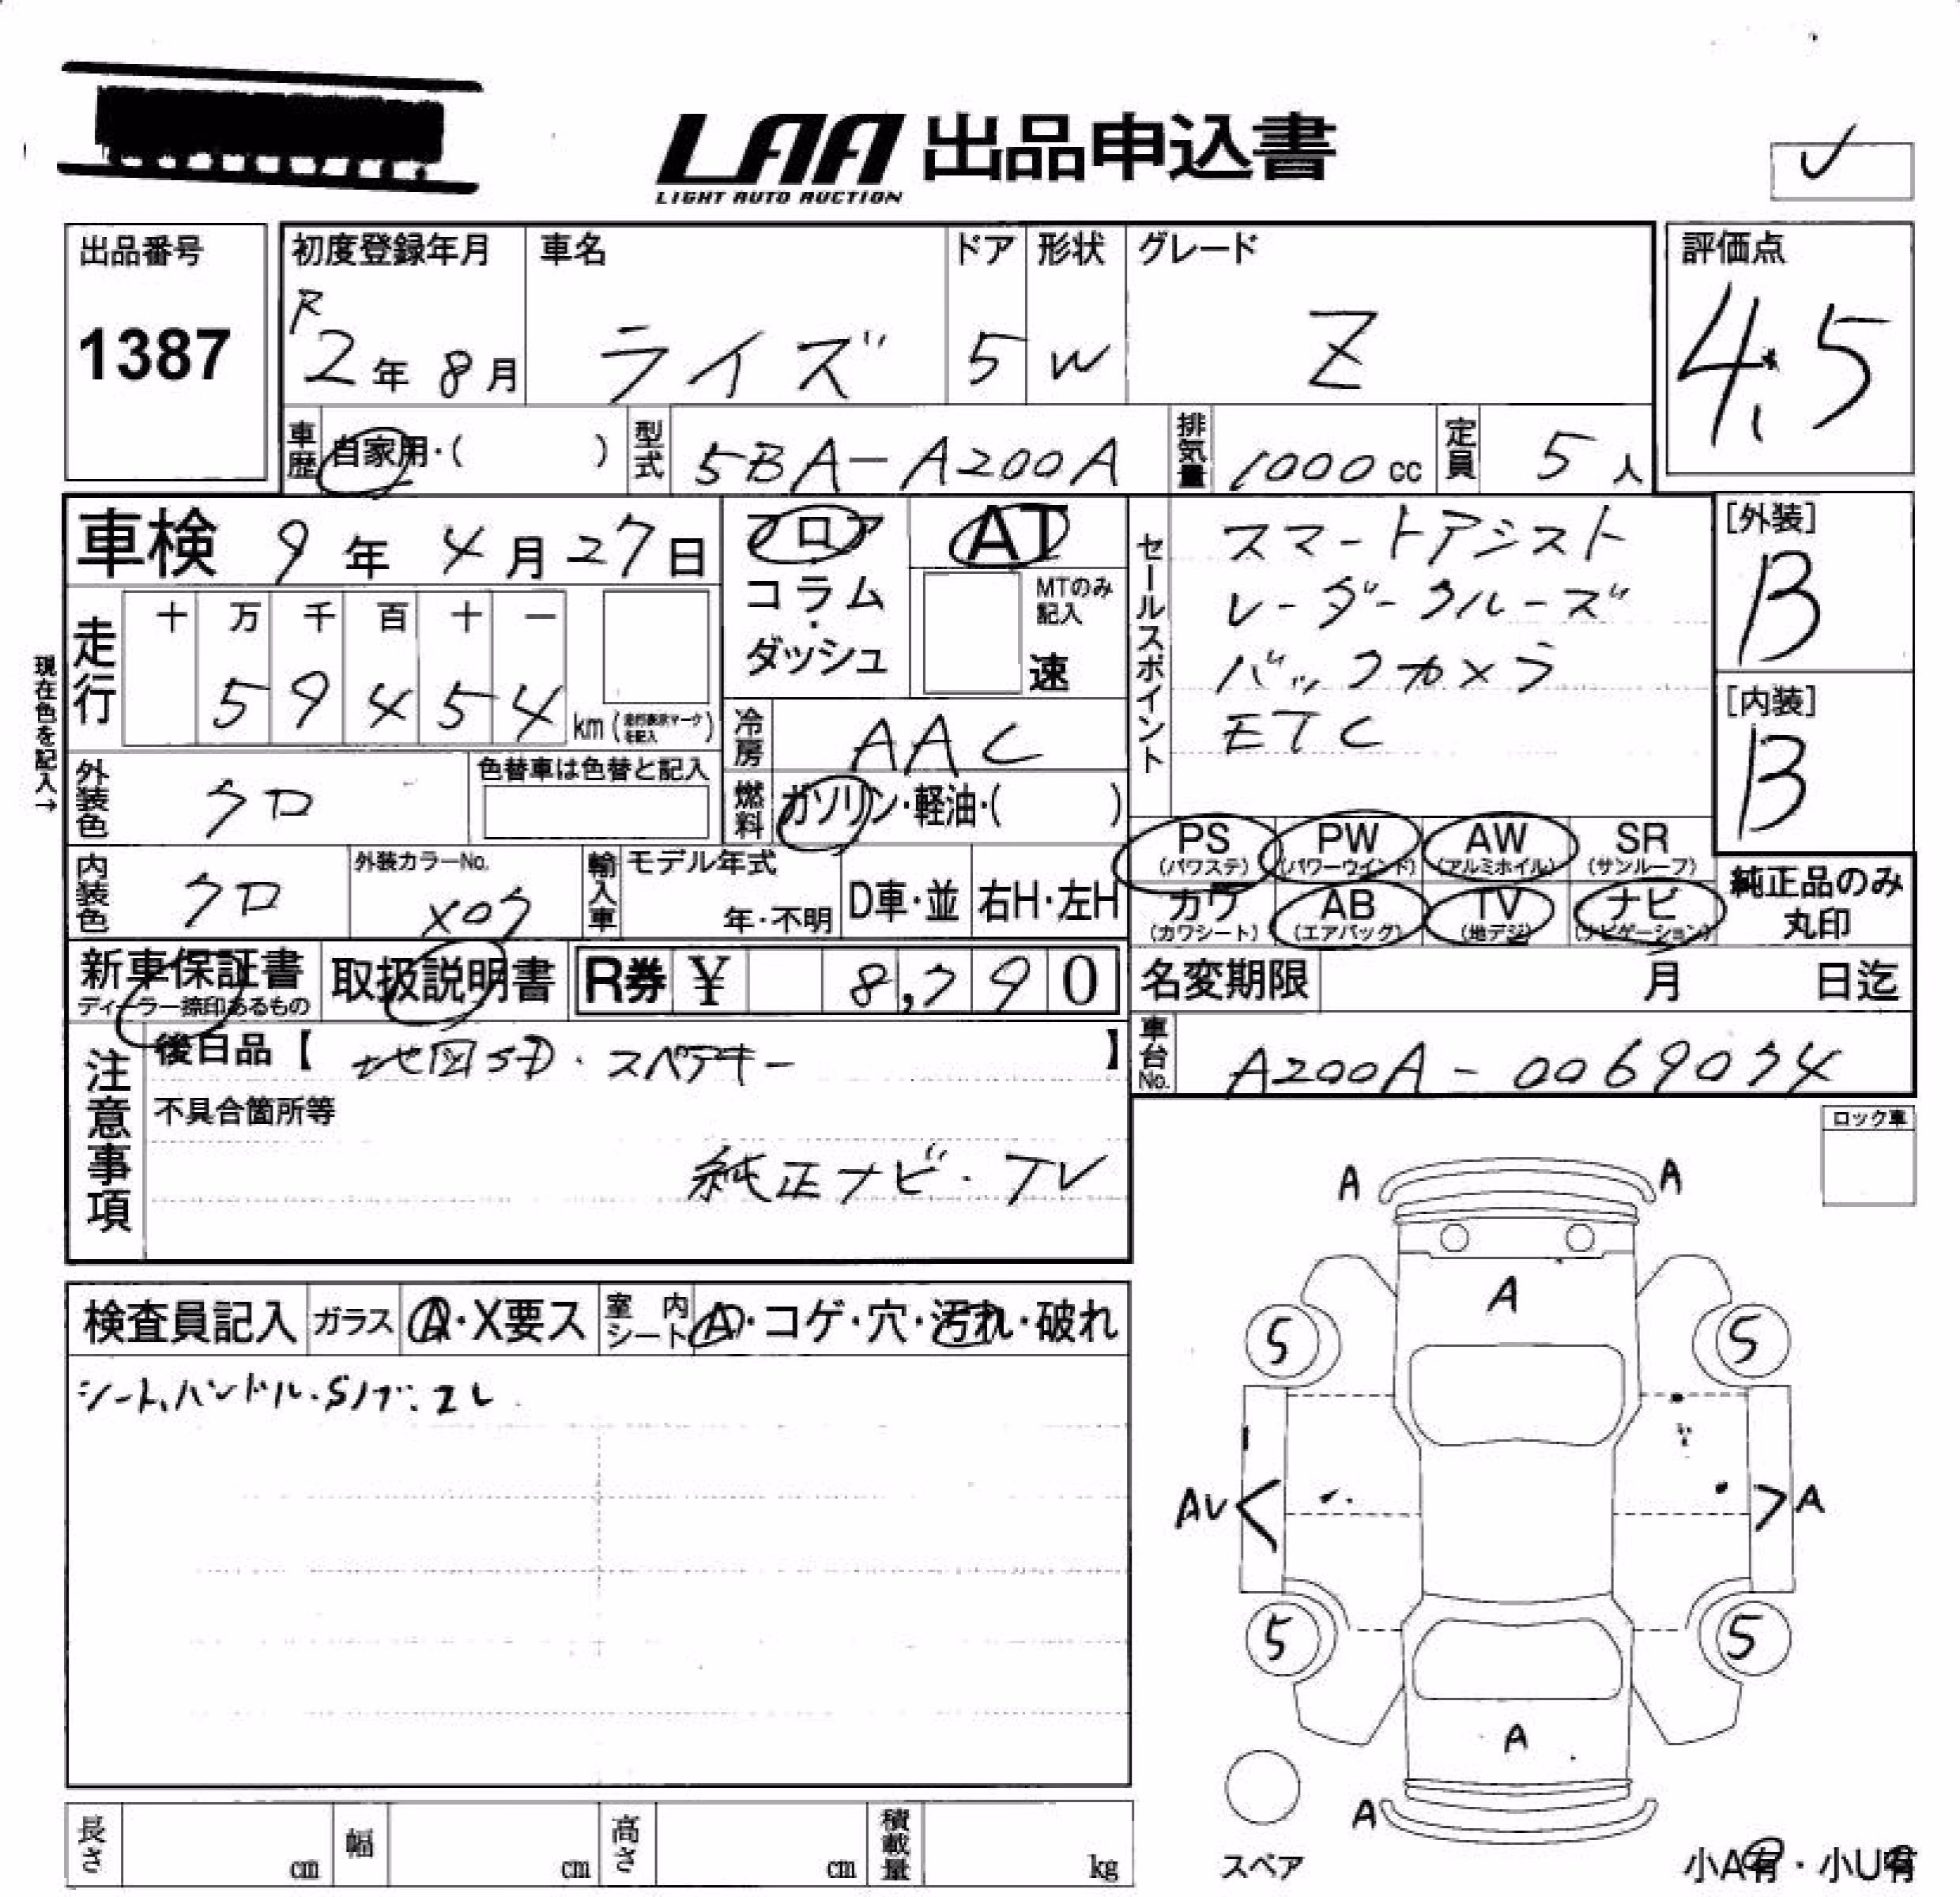 LAA 出品申込書
LIGHT AUTO AUCTION
出品番号
1387
初度登録年月
R
2年 8月
車名
ライズ
ドア
5
形状
W
グレード
Z
評価点
4.5
車歴
自家用・( )
型式
5BA-A200A
排気量
1000cc
定員
5人
車検 9年 4月27日
フロア
コラム
・
ダッシュ
AT
MTのみ
記入
速
セールスポイント
スマートアシスト
レーダークルーズ
バックカメラ
ETC
[外装]
B
[内装]
B
現在色を記入→
走行
十 万 千 百 十 一
5 9 4 5 4
km (走行表示マークを記入)
冷房
AAC
燃料
ガソリン・軽油・( )
外装色
クロ
色替車は色替と記入
内装色
クロ
外装カラーNo.
X07
輸入車
モデル年式
年・不明
D車・並
右H・左H
PS
(パワステ)
PW
(パワーウインド)
AW
(アルミホイル)
SR
(サンルーフ)
カワ
(カワシート)
AB
(エアバック)
TV
(地デジ)
ナビ
(ナビゲーション)
純正品のみ
丸印
新車保証書
ディーラー捺印あるもの
取扱説明書
R券 ¥ 8,790
名変期限 月 日迄
車台No.
A200A-0069074
注意事項
後日品【 地図SD・スペアキー 】
不具合箇所等
純正ナビ・TV
ロック車
検査員記入
ガラス
A・X要ス
室内
シート
A・コゲ・穴・汚れ・破れ
シート、ハンドル・Sノブ:スレ
A
A
A
5
5
AV
A
5
5
A
A
スペア
小A有・小U有
長さ
cm
幅
cm
高さ
cm
積載量
kg